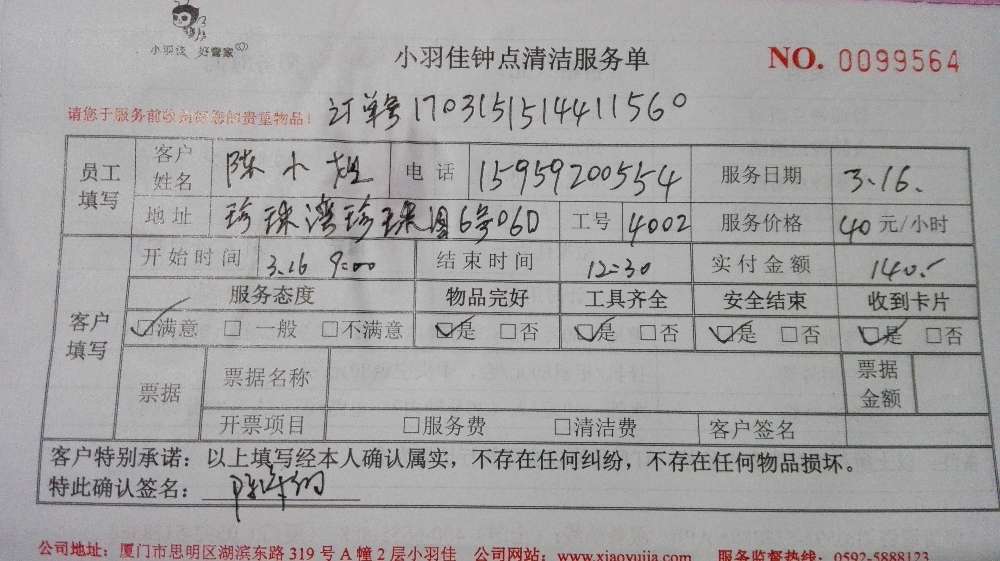 小羽佳 好管家
小羽佳钟点清洁服务单 NO. 0099564
请您于服务前收好您的贵重物品！ 订单号1703151514411560
员工填写 客户姓名 陈小姐 电话 15959200554 服务日期 3.16.
地址 珍珠湾珍珠 6号06D 工号 4002 服务价格 40元/小时
客户填写 开始时间 3.16 9:00 结束时间 12:30 实付金额 140.-
服务态度 物品完好 工具齐全 安全结束 收到卡片
☑满意 □一般 □不满意 ☑是 □否 ☑是 □否 ☑是 □否 ☑是 □否
票据 票据名称 票据金额
开票项目 □服务费 □清洁费 客户签名
客户特别承诺：以上填写经本人确认属实，不存在任何纠纷，不存在任何物品损坏。
特此确认签名：
公司地址：厦门市思明区湖滨东路319号A幢2层小羽佳 公司网站：www.xiaoyujia.com 服务监督热线：0592-5888123